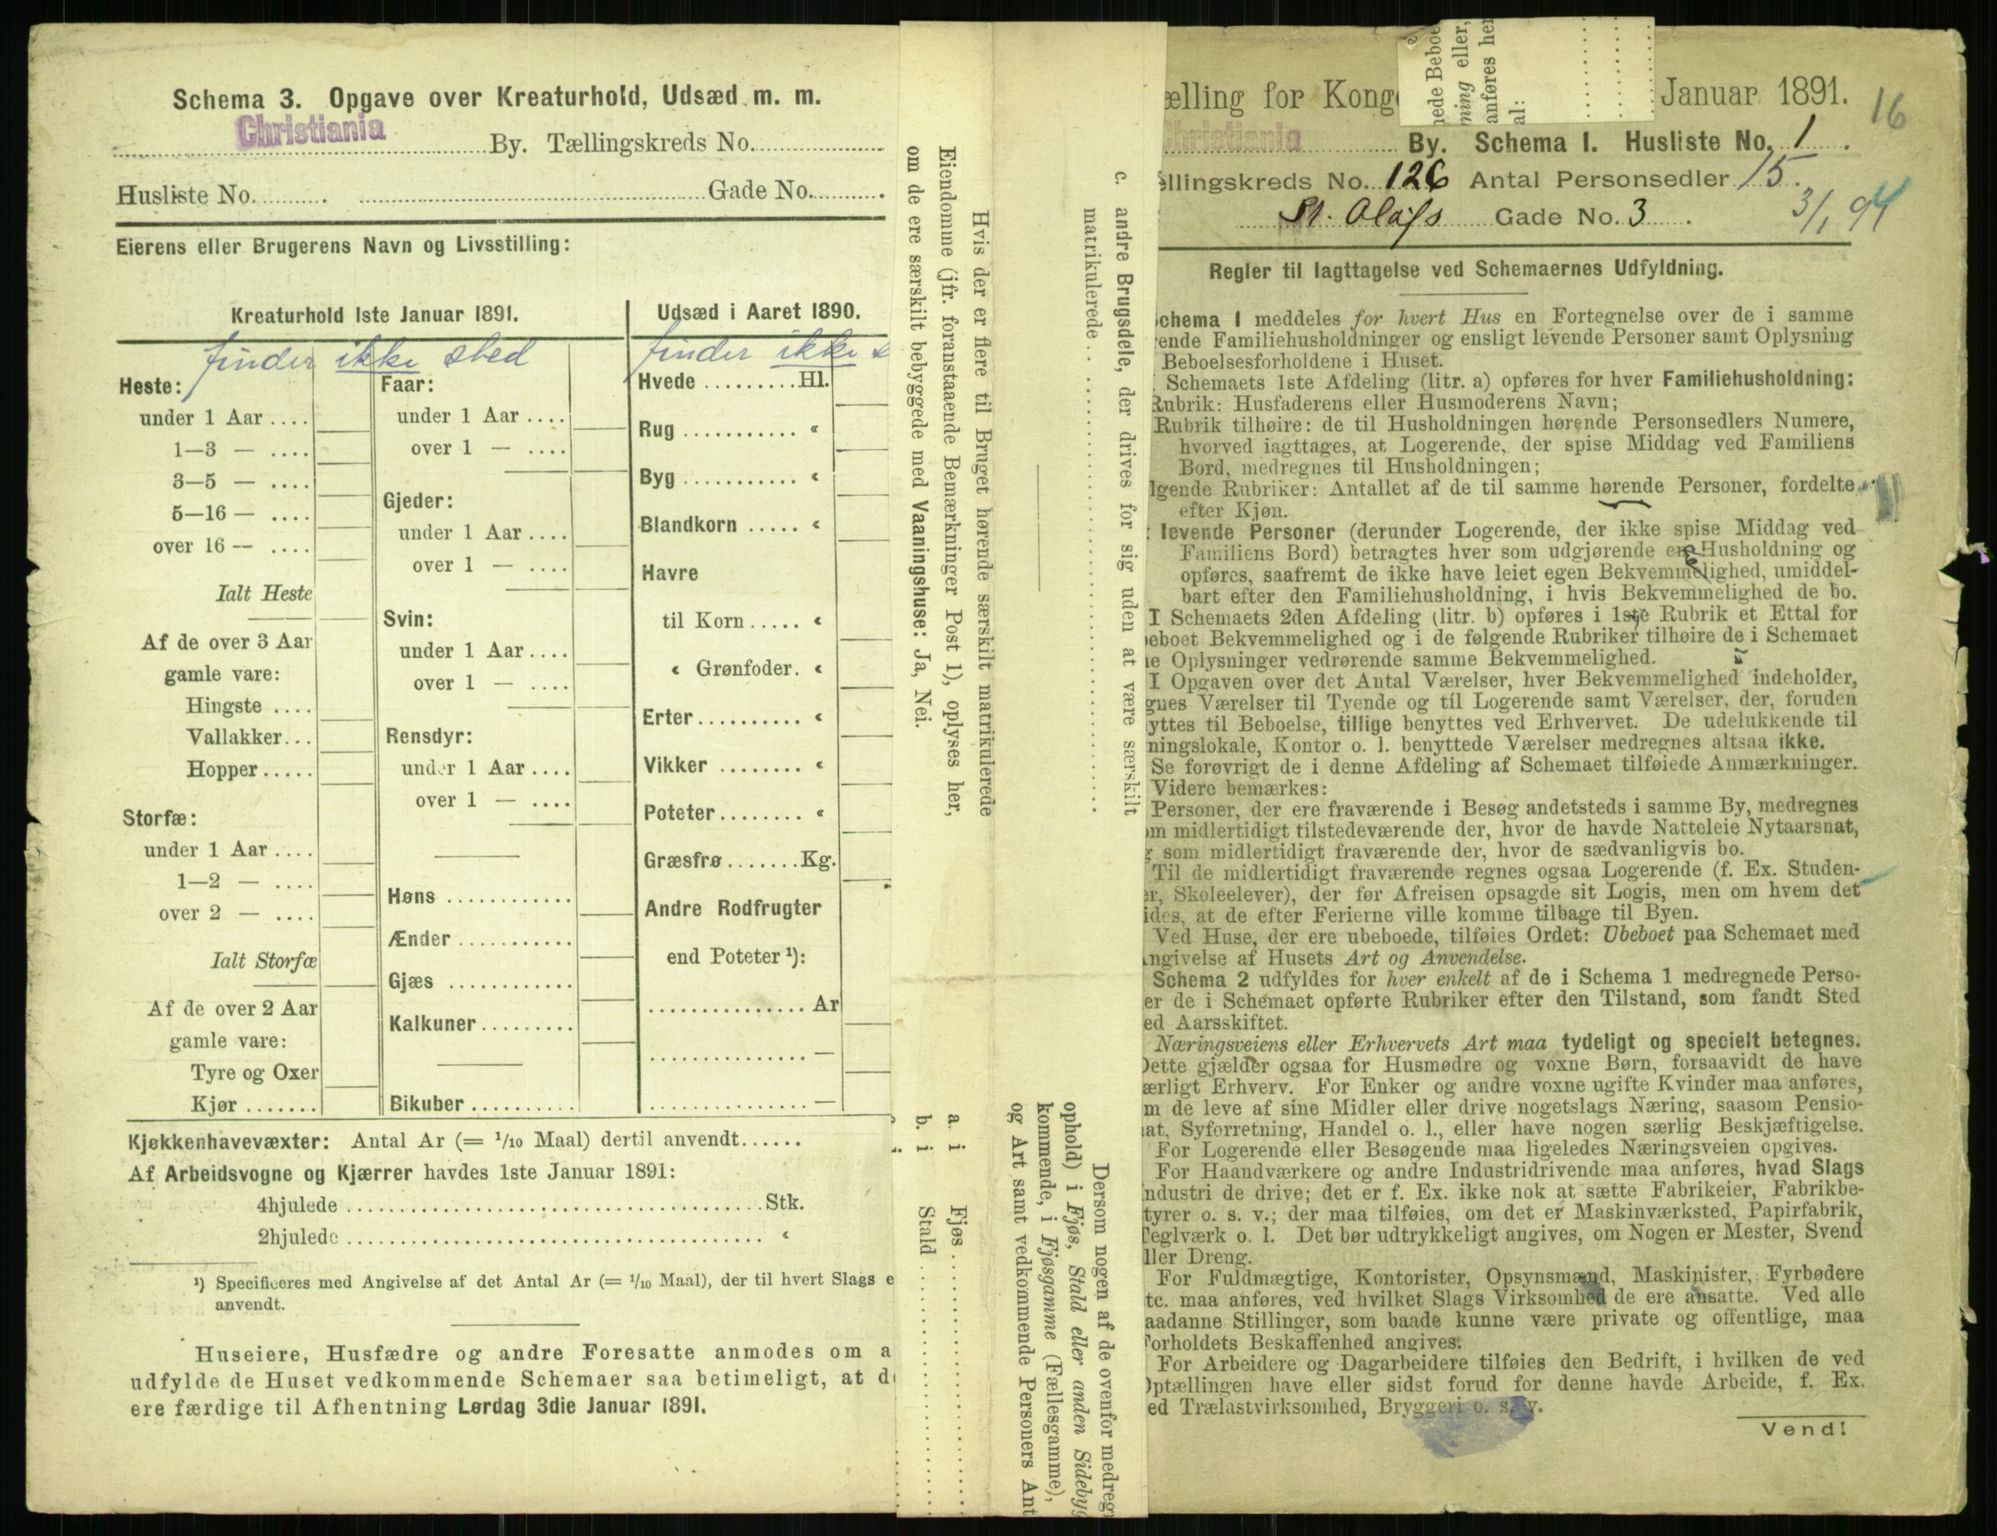 Schema 3. Opgave over Kreaturhold, Udsæd m. m.
Christiania By. Tællingskreds No.
Husliste No. Gade No.
Eierens eller Brugerens Navn og Livsstilling:
Kreaturhold 1ste Januar 1891.
finder ikke sted
Heste:
under 1 Aar
1—3 —
3—5 —
5—16 —
over 16 —
Ialt Heste
Af de over 3 Aar
gamle vare:
Hingste
Vallakker
Hopper
Storfæ:
under 1 Aar
1—2 —
over 2 —
Ialt Storfæ
Af de over 2 Aar
gamle vare:
Tyre og Oxer
Kjør
Faar:
under 1 Aar
over 1 —
Gjeder:
under 1 Aar
over 1 —
Svin:
under 1 Aar
over 1 —
Rensdyr:
under 1 Aar
over 1 —
Høns
Ænder
Gjæs
Kalkuner
Bikuber
Udsæd i Aaret 1890.
finder ikke s
Hvede Hl.
Rug «
Byg «
Blandkorn «
Havre
til Korn «
« Grønfoder. «
Erter «
Vikker «
Poteter «
Græsfrø Kg.
Andre Rodfrugter
end Poteter ¹):
Ar
—
—
Kjøkkenhavevæxter: Antal Ar (= 1/10 Maal) dertil anvendt
Af Arbeidsvogne og Kjærrer havdes 1ste Januar 1891:
4hjulede Stk.
2hjulede «
¹) Specificeres med Angivelse af det Antal Ar (= 1/10 Maal), der til hvert Slags e
anvendt.
Huseiere, Husfædre og andre Foresatte anmodes om a
udfylde de Huset vedkommende Schemaer saa betimeligt, at d
ere færdige til Afhentning Lørdag 3die Januar 1891.
c. andre Brugsdele, der drives for sig uden at være særskilt
matrikulerede
Hvis der er flere til Bruget hørende særskilt matrikulerede
Eiendomme (jfr. foranstaaende Bemærkninger Post 1), oplyses her,
om de ere særskilt bebyggede med Vaaningshuse: Ja, Nei.
Dersom nogen af de ovenfor medregn
ophold) i Fjøs, Stald eller anden Sidebyg
kommende, i Fjøsgamme (Fællesgamme),
og Art samt vedkommende Personers Ant
a. i Fjøs
b. i Stald
nede Beboe
ming eller,
anføres her
al:
ælling for Kong Januar 1891.
16
Christiania By. Schema 1. Husliste No. 1
ællingskreds No. 126 Antal Personsedler 15.
St. Olafs Gade No. 3.
3/1 91
Regler til Iagttagelse ved Schemaernes Udfyldning.
Schema 1 meddeles for hvert Hus en Fortegnelse over de i samme
rende Familiehusholdninger og ensligt levende Personer samt Oplysning
Beboelsesforholdene i Huset.
Schemaets 1ste Afdeling (litr. a) opføres for hver Familiehusholdning:
Rubrik: Husfaderens eller Husmoderens Navn;
Rubrik tilhøire: de til Husholdningen hørende Personsedlers Numere,
hvorved iagttages, at Logerende, der spise Middag ved Familiens
Bord, medregnes til Husholdningen;
lgende Rubriker: Antallet af de til samme hørende Personer, fordelte
efter Kjøn.
t levende Personer (derunder Logerende, der ikke spise Middag ved
Familiens Bord) betragtes hver som udgjørende en Husholdning og
opføres, saafremt de ikke have leiet egen Bekvemmelighed, umiddel-
bart efter den Familiehusholdning, i hvis Bekvemmelighed de bo.
I Schemaets 2den Afdeling (litr. b) opføres i 1ste Rubrik et Ettal for
beboet Bekvemmelighed og i de følgende Rubriker tilhøire de i Schemaet
ne Oplysninger vedrørende samme Bekvemmelighed.
I Opgaven over det Antal Værelser, hver Bekvemmelighed indeholder,
gnes Værelser til Tyende og til Logerende samt Værelser, der, foruden
yttes til Beboelse, tillige benyttes ved Erhvervet. De udelukkende til
ningslokale, Kontor o. l. benyttede Værelser medregnes altsaa ikke.
Se forøvrigt de i denne Afdeling af Schemaet tilføiede Anmærkninger.
Videre bemærkes:
Personer, der ere fraværende i Besøg andetsteds i samme By, medregnes
om midlertidigt tilstedeværende der, hvor de havde Natteleie Nytaarsnat,
g som midlertidigt fraværende der, hvor de sædvanligvis bo.
Til de midlertidigt fraværende regnes ogsaa Logerende (f. Ex. Studen-
er, Skoleelever), der før Afreisen opsagde sit Logis, men om hvem det
ides, at de efter Ferierne ville komme tilbage til Byen.
Ved Huse, der ere ubeboede, tilføies Ordet: Ubeboet paa Schemaet med
Angivelse af Husets Art og Anvendelse.
Schema 2 udfyldes for hver enkelt af de i Schema 1 medregnede Perso-
er de i Schemaet opførte Rubriker efter den Tilstand, som fandt Sted
ed Aarsskiftet.
Næringsveiens eller Erhvervets Art maa tydeligt og specielt betegnes.
Dette gjælder ogsaa for Husmødre og voxne Børn, forsaavidt de have
ærligt Erhverv. For Enker og andre voxne ugifte Kvinder maa anføres,
m de leve af sine Midler eller drive nogetslags Næring, saasom Pensio-
at, Syforretning, Handel o. l., eller have nogen særlig Beskjæftigelse.
For Logerende eller Besøgende maa ligeledes Næringsveien opgives.
For Haandværkere og andre Industridrivende maa anføres, hvad Slags
Industri de drive; det er f. Ex. ikke nok at sætte Fabrikeier, Fabrikbe-
tyrer o. s. v.; der maa tilføies, om det er Maskinværksted, Papirfabrik,
Teglværk o. l. Det bør udtrykkeligt angives, om Nogen er Mester, Svend
ller Dreng.
For Fuldmægtige, Kontorister, Opsynsmænd, Maskinister, Fyrbødere
tc. maa anføres, ved hvilket Slags Virksomhed de ere ansatte. Ved alle
aadanne Stillinger, som baade kunne være private og offentlige, maa
orholdets Beskaffenhed angives.
For Arbeidere og Dagarbeidere tilføies den Bedrift, i hvilken de ved
Optællingen have eller sidst forud for denne havde Arbeide, f. Ex.
ed Trælastvirksomhed, Bryggeri o. s. v.
Vend!